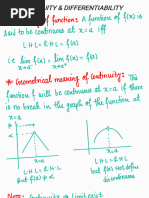 NUITY & DIFFERENTIABILITY
of function: A function of f(x) is
said to be continuous at x=a iff
L·H·L = R·H·L = f(a)
i.e lim f(x) = lim f(x) = f(a)
x→a⁻ x→a⁺
* Geometrical meaning of Continuity: The
function f will be continuous at x=a if there
is no break in the graph of the function at
x=a
x=a
L·H·L = R·H·L
but f(a) ≠
L·H·L = R·H·L
but f(a) not define
discontinuous
Note: Limit exist